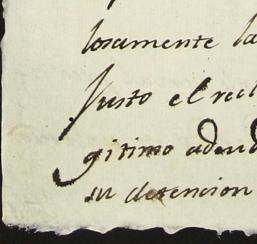 losamente la
Justo el rec
gitimo adeud
su detencion